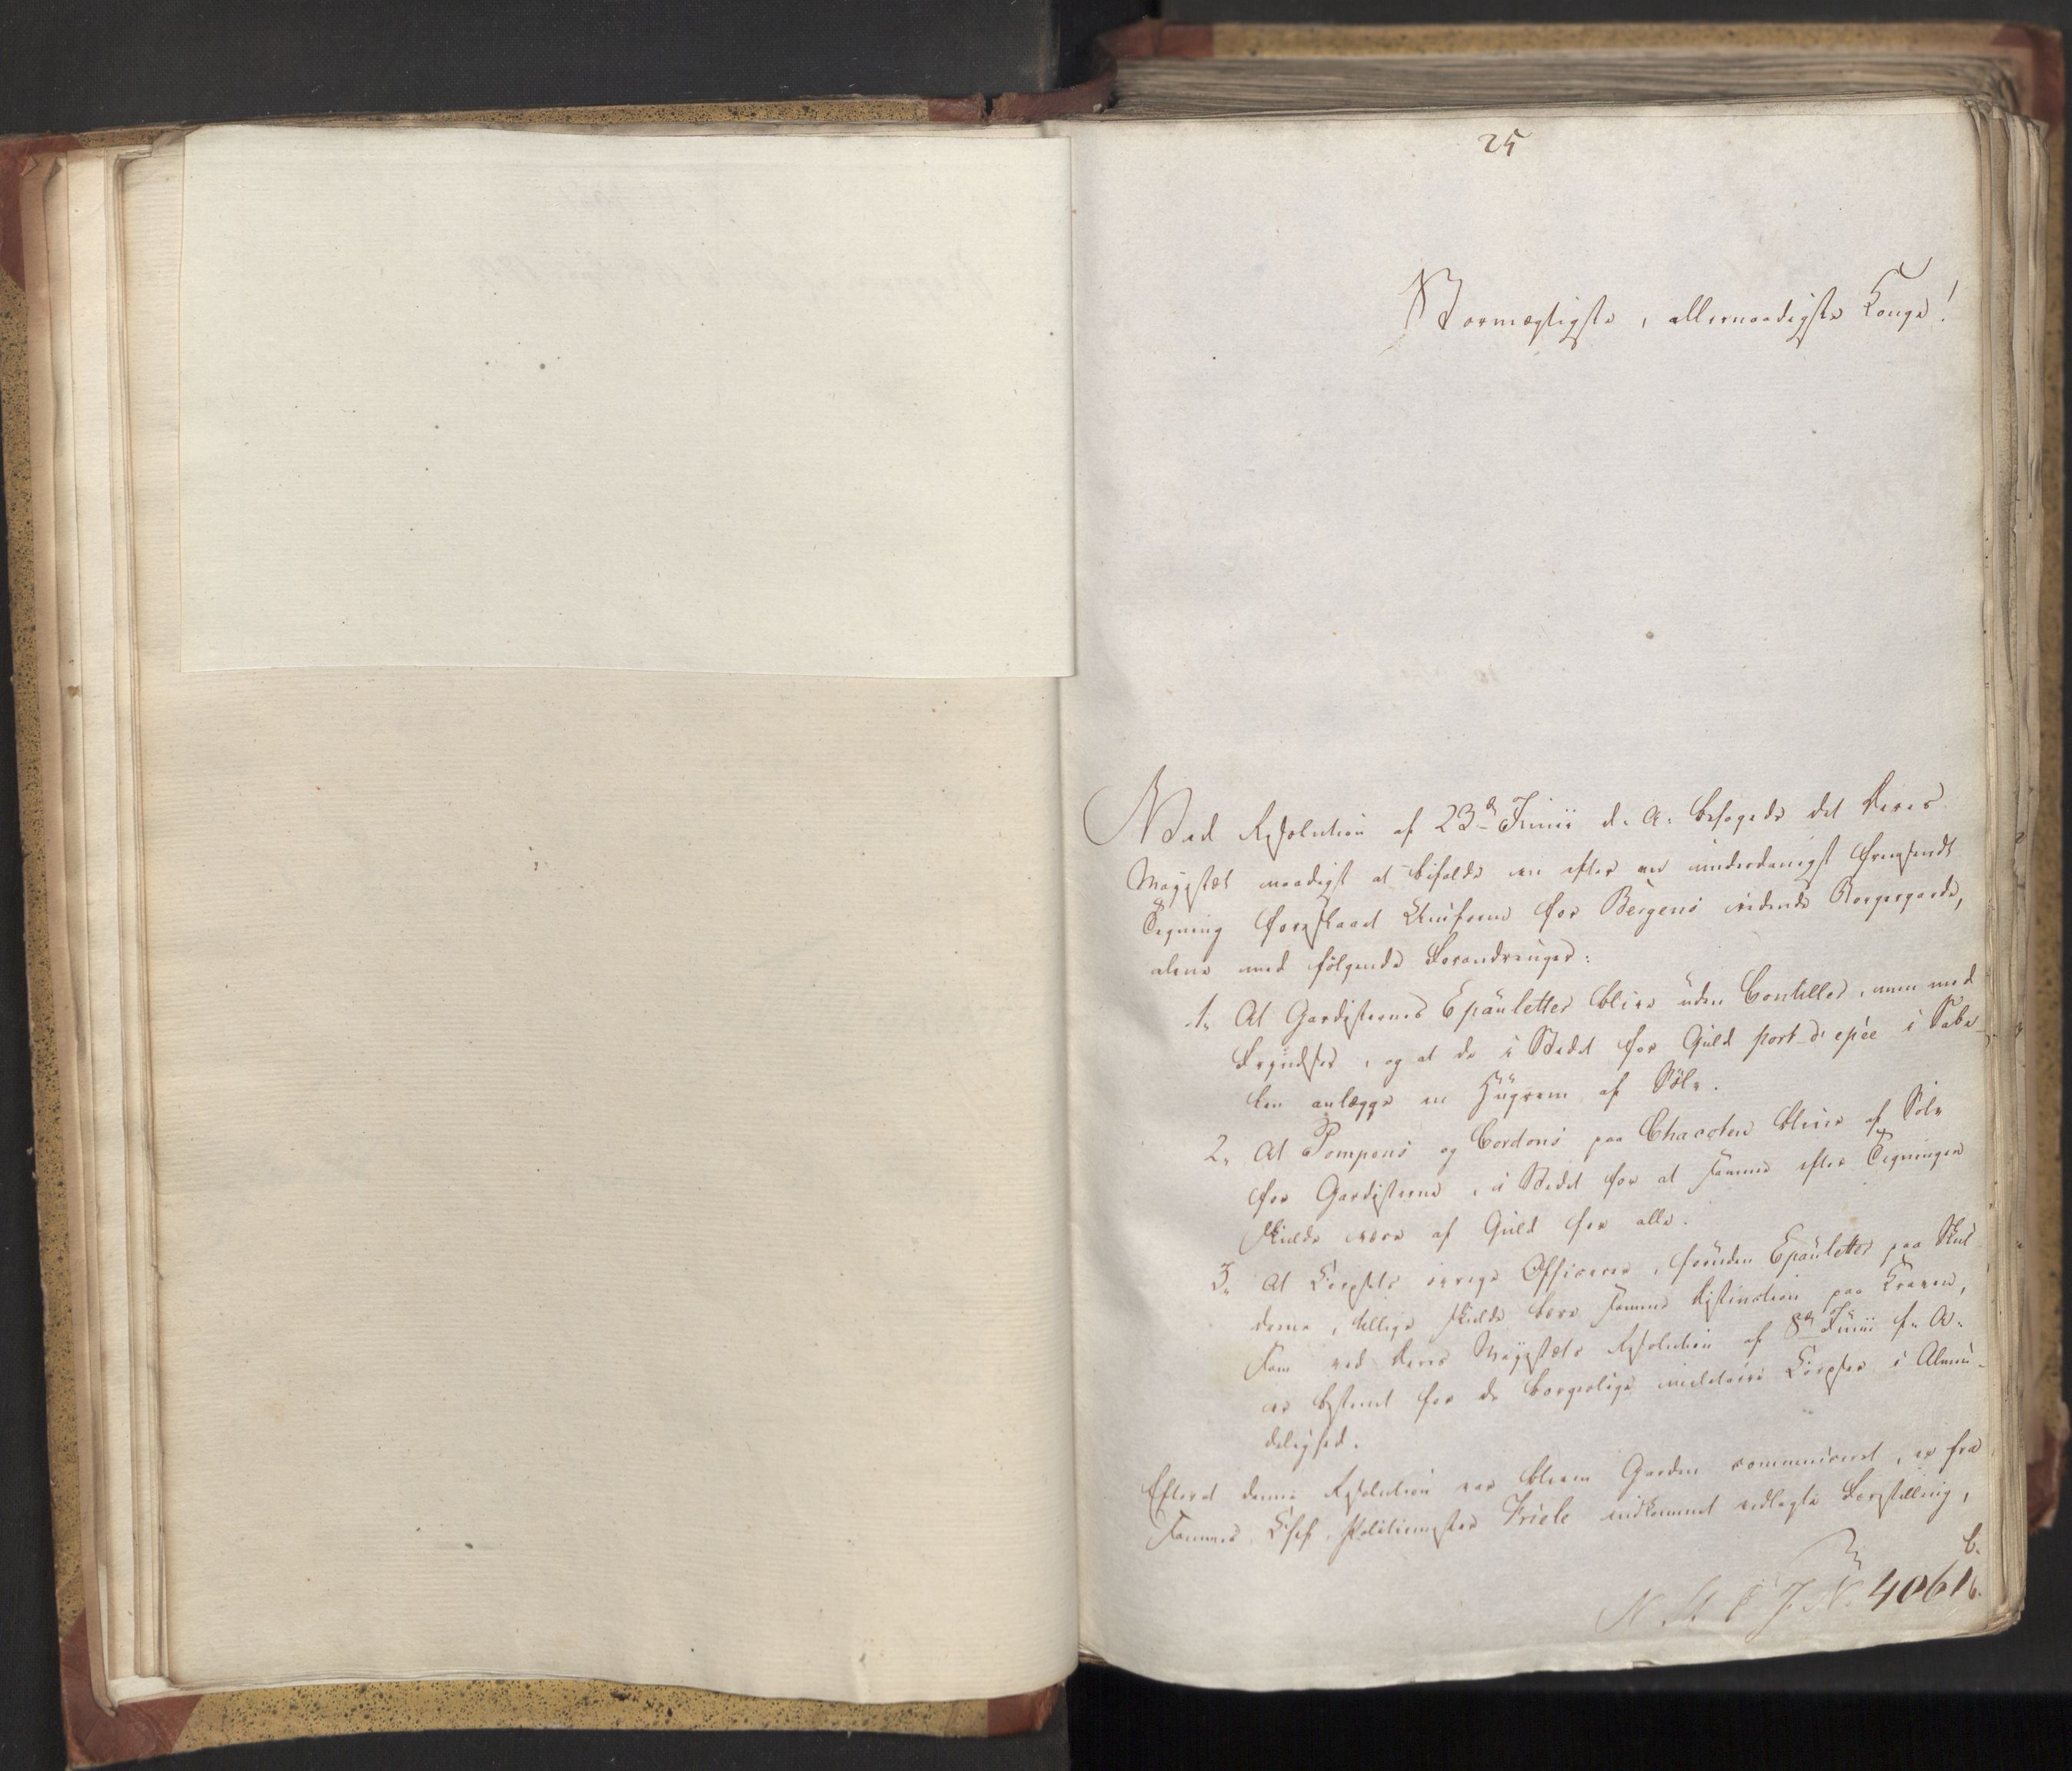 25
Stormægtigste, allernaadigste Konge!
Ved Resolution af 23d Junii d. A. behagede det Deres
Majestæt naadigst at bifalde en efter en underdanigst fremsendt
Tegning foreslaaet Uniform for Bergens ridende Borgergarde,
alene med følgende Forandringer:
1, At Gardisternes Epauletter blive uden Contiller, men med
Fryndser, og at de i Stedet for Guld port d'epée i Sabe-
len anlægge en Haandrem af Sølv.
2, At Pompons og Cordons paa Chacoten blive af Sølv
for Gardisterne, i Stedet for at samme efter Tegningen
skulde være af Guld for alle.
3, At Corpsets øvrige Officerer, foruden Epauletter paa Skul-
drene, tillige skulde bære samme Distinction paa Kraven,
som ved Deres Majestæts Resolution af 8de Junii f. A.
er bestemt for de borgerlige militaire Corpser i Almin-
delighed.
Efterat denne Resolution var bleven Garden communiceret, er fra
sammes Chef Politiemester Friele indkommet vedlagte Forestilling,
b.
J. N. 4061b.